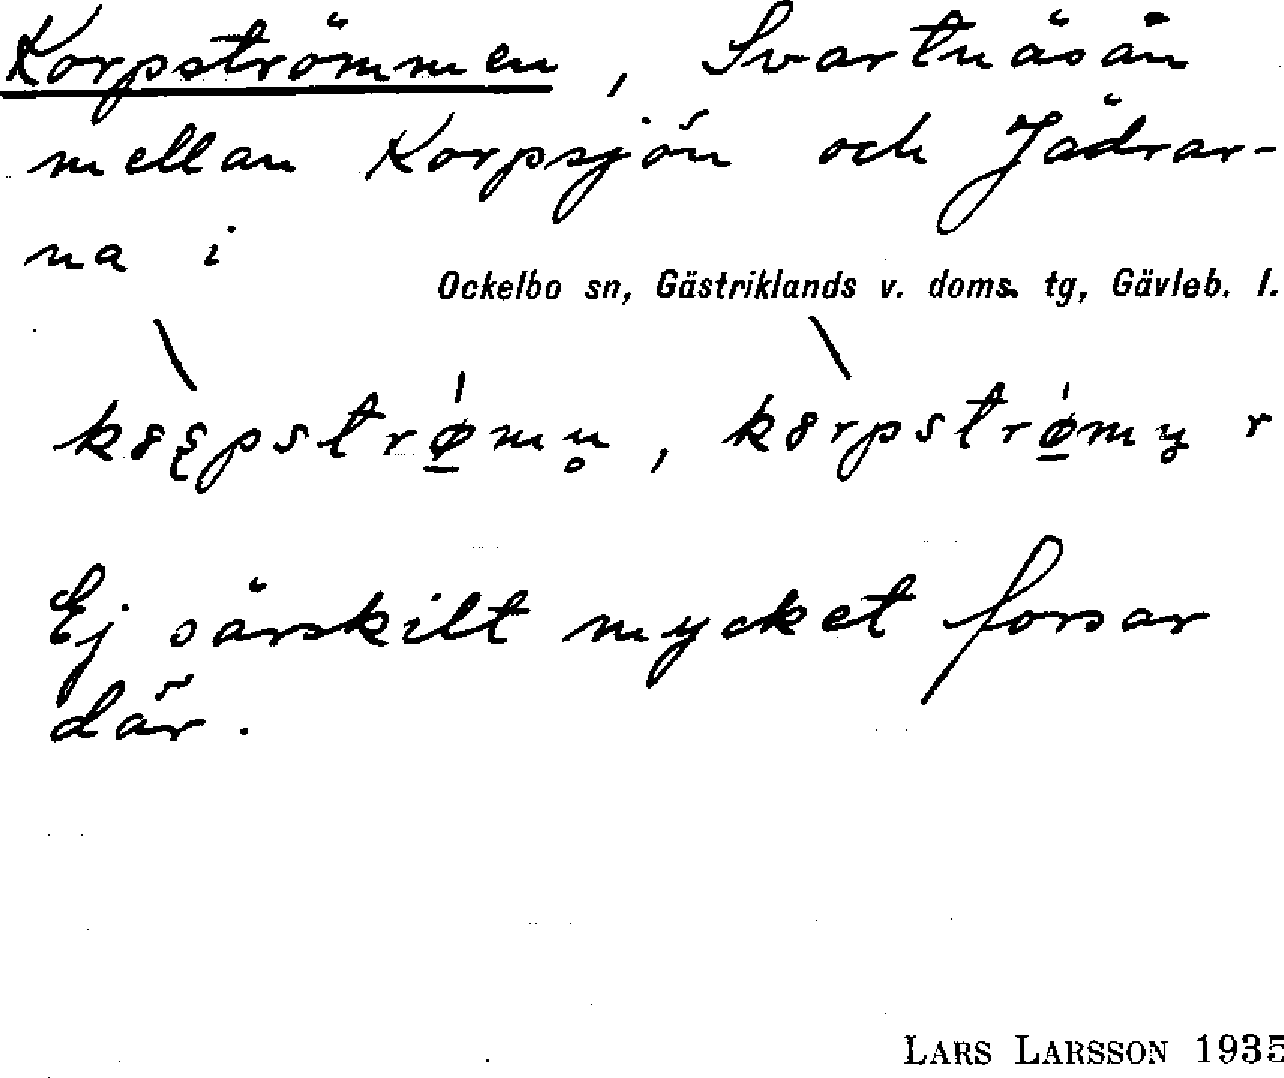 Korpströmmen, Svartnäsån
mellan Korpsjön och Jädrar-
na i
Ockelbo sn, Gästriklands v. doms. tg, Gävleb. l.
Ej särskilt mycket forsar
där.
LARS LARSSON 1935